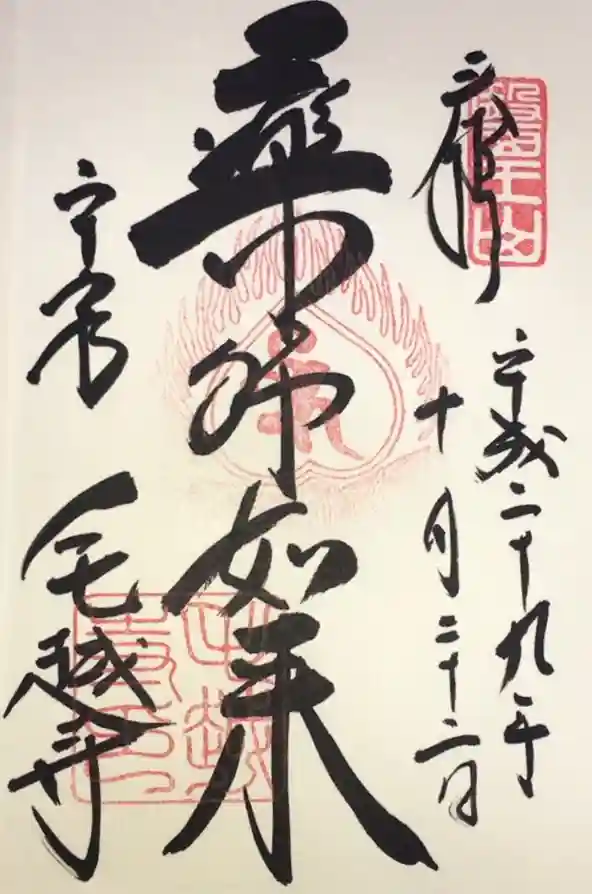 醫王山
奉拝
平成二十九年
十月二十二日
薬師如来
平泉
毛越寺
毛越寺印